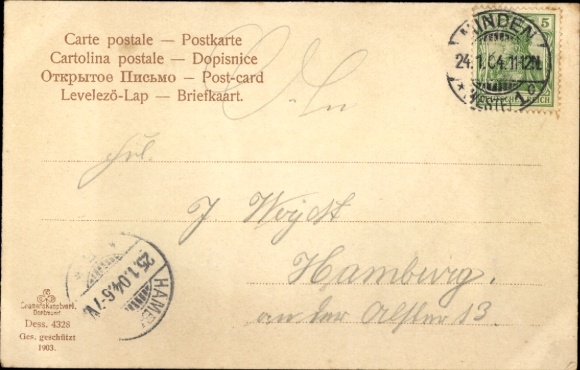 Carte postale — Postkarte
Cartolina postale — Dopisnice
Открытое Письмо — Post-card
Levelező-Lap — Briefkaart.
MINDEN
5
24.1.04.11-12N.
* (WESTF.) 1 c
Frl.
J
Hamburg.
an der Alster 13.
25.1.04.6-7V.
HAMB
Dortmund
Dess. 4328
Ges. geschützt
1903.